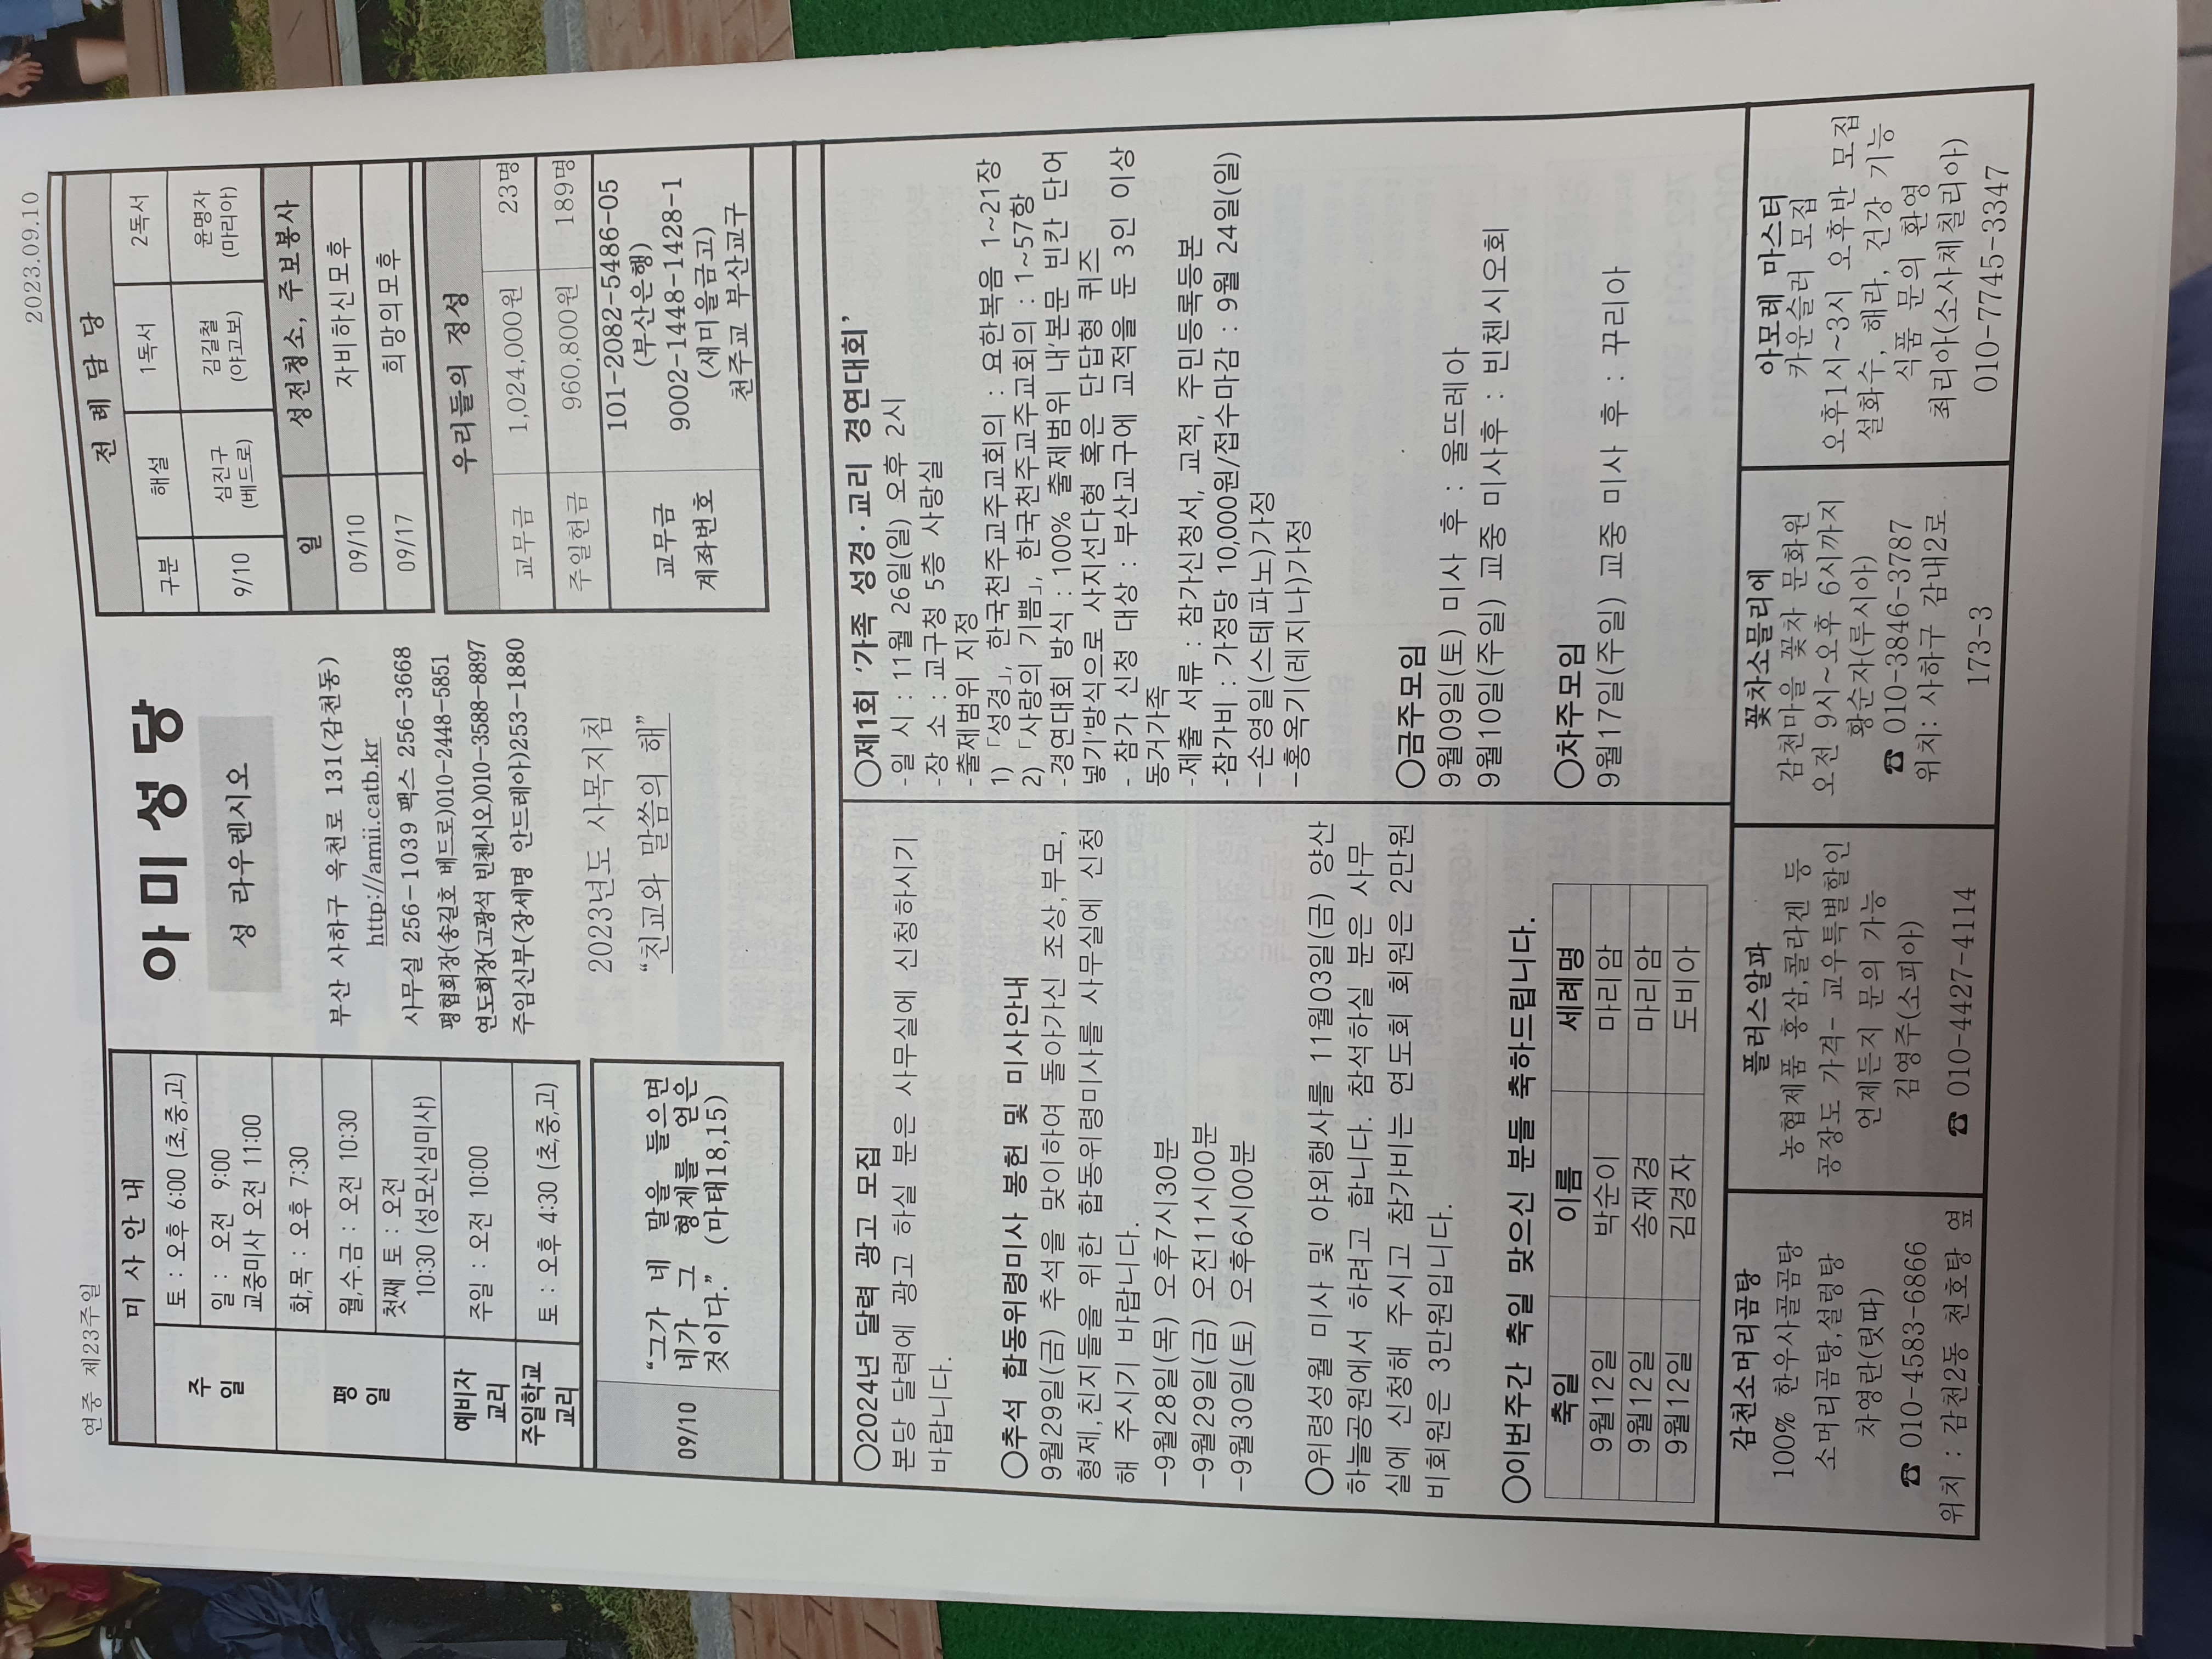 연중 제23주일
2023.09.10
미 사 안 내
주일
토 : 오후 6:00 (초,중,고)
일 : 오전 9:00
교중미사 오전 11:00
평일
화,목 : 오후 7:30
월,수.금 : 오전 10:30
첫째 토 : 오전
10:30 (성모신심미사)
예비자 교리
주일 : 오전 10:00
주일학교 교리
토 : 오후 4:30 (초,중,고)
09/10
“그가 네 말을 들으면
네가 그 형제를 얻은
것이다.” (마태18,15)
아미성당
성 라우렌시오
부산 사하구 옥천로 131(감천동)
http://amii.catb.kr
사무실 256-1039 팩스 256-3668
평협회장(송길호 베드로)010-2448-5851
연도회장(고광석 빈첸시오)010-3588-8897
주임신부(장세명 안드레아)253-1880
2023년도 사목지침
“친교와 말씀의 해”
전 례 담 당
구분 해설 1독서 2독서
9/10 심진구 김길철 윤명자
(베드로) (야고보) (마리아)
일 성전청소, 주보봉사
09/10 자비하신모후
09/17 희망의모후
우리들의 정성
교무금 1,024,000원 23명
주일헌금 960,800원 189명
교무금
계좌번호
101-2082-5486-05
(부산은행)
9002-1448-1428-1
(새마을금고)
천주교 부산교구
○2024년 달력 광고 모집
본당 달력에 광고 하실 분은 사무실에 신청하시기
바랍니다.
○추석 합동위령미사 봉헌 및 미사안내
9월29일(금) 추석을 맞이하여 돌아가신 조상,부모,
형제,친지들을 위한 합동위령미사를 사무실에 신청
해 주시기 바랍니다.
-9월28일(목) 오후7시30분
-9월29일(금) 오전11시00분
-9월30일(토) 오후6시00분
○위령성월 미사 및 야외행사를 11월03일(금) 양산
하늘공원에서 하려고 합니다. 참석하실 분은 사무
실에 신청해 주시고 참가비는 연도회 회원은 2만원
비회원은 3만원입니다.
○이번주간 축일 맞으신 분들 축하드립니다.
축일 이름 세례명
9월12일 박순이 마리암
9월12일 송재경 마리암
9월12일 김경자 도비아
○제1회 '가족 성경·교리 경연대회'
-일 시 : 11월 26일(일) 오후 2시
-장 소 : 교구청 5층 사랑실
-출제범위 지정
1) 「성경」, 한국천주교주교회의 : 요한복음 1~21장
2) 「사랑의 기쁨」, 한국천주교주교회의 : 1~57항
-경연대회 방식 : 100% 출제범위 내'본문 빈칸 단어
넣기'방식으로 사지선다형 혹은 단답형 퀴즈
- 참가 신청 대상 : 부산교구에 교적을 둔 3인 이상
동거가족
-제출 서류 : 참가신청서, 교적, 주민등록등본
-참가비 : 가정당 10,000원/접수마감 : 9월 24일(일)
-손영일(스테파노)가정
-홍옥기(레지나)가정
○금주모임
9월09일(토) 미사 후 : 울뜨레아
9월10일(주일) 교중 미사후 : 빈첸시오회
○차주모임
9월17일(주일) 교중 미사 후 : 꾸리아
감천소머리곰탕
100% 한우사골곰탕
소머리곰탕,설렁탕
차영란(릿따)
☎ 010-4583-6866
위치 : 감천2동 천호탕 옆
플러스알파
농협제품 홍삼,콜라겐 등
공장도 가격- 교우특별할인
언제든지 문의 가능
김영주(소피아)
☎ 010-4427-4114
꽃차소믈리에
감천마을 꽃차 문화원
오전 9시~오후 6시까지
황순자(루시아)
☎ 010-3846-3787
위치: 사하구 감내2로
173-3
아모레 마스터
카운슬러 모집
오후1시~3시 오후반 모집
설화수, 헤라, 건강 기능
식품 문의 환영
최리아(소사체칠리아)
010-7745-3347